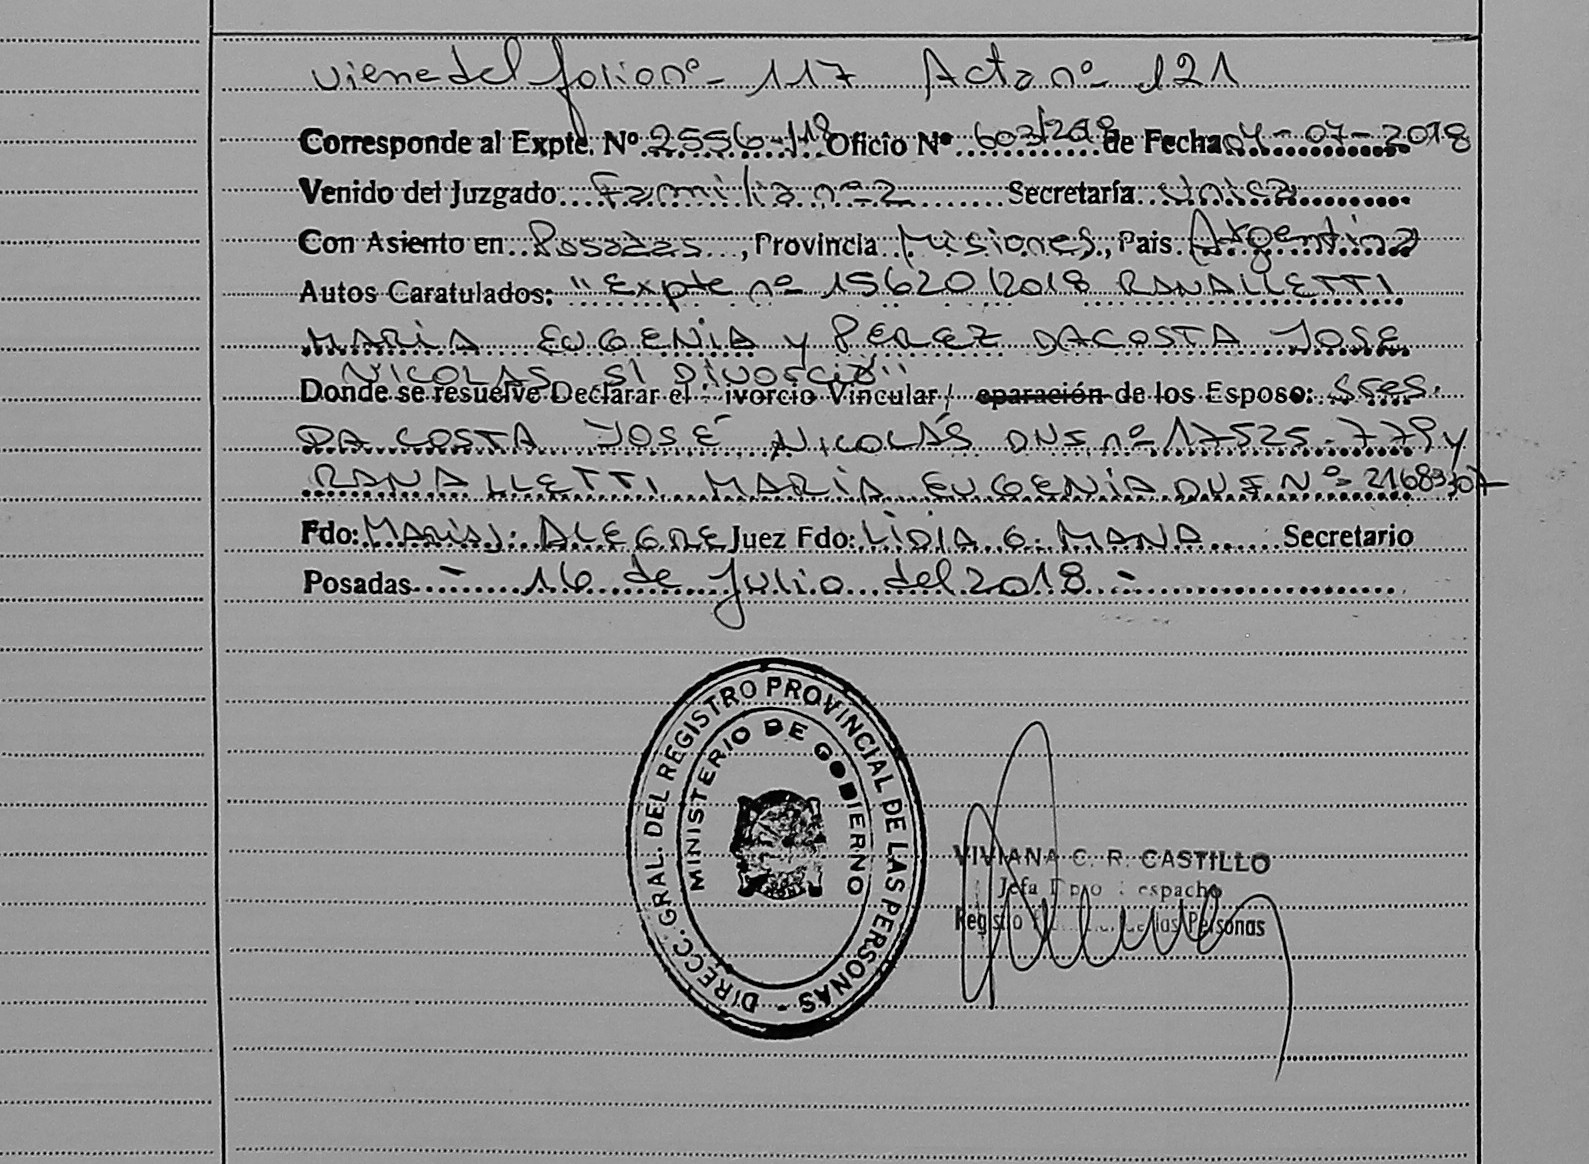 viene del folio nº - 117 Acta nº 121
Corresponde al Expte. Nº 2556-/18 Oficio Nº 603/2018 de Fecha 04-07-2018
Venido del Juzgado Familia nº 2 Secretaría Unica
Con Asiento en Posadas, Provincia Misiones, Pais Argentina
Autos Caratulados: "Expte nº 15620/2018 RANALLETTI
MARIA EUGENIA y PEREZ DACOSTA JOSE
NICOLAS S/ Divorcio"
Donde se resuelve Declarar el ivorcio Vincular / eparación de los Esposo: Sres.
DA COSTA JOSÉ NICOLÁS DNI nº 17525.779 y
RANALLETTI MARIA EUGENIA DNI Nº 21683307
Fdo: MARIA J. ALEGRE Juez Fdo: LIDIA G. MANA Secretario
Posadas - 16 de Julio del 2018 -
DIRECC. GRAL. DEL REGISTRO PROVINCIAL DE LAS PERSONAS -
MINISTERIO DE GOBIERNO
VIVIANA C. R. CASTILLO
Jefa Dpto espacho
Registro las Personas